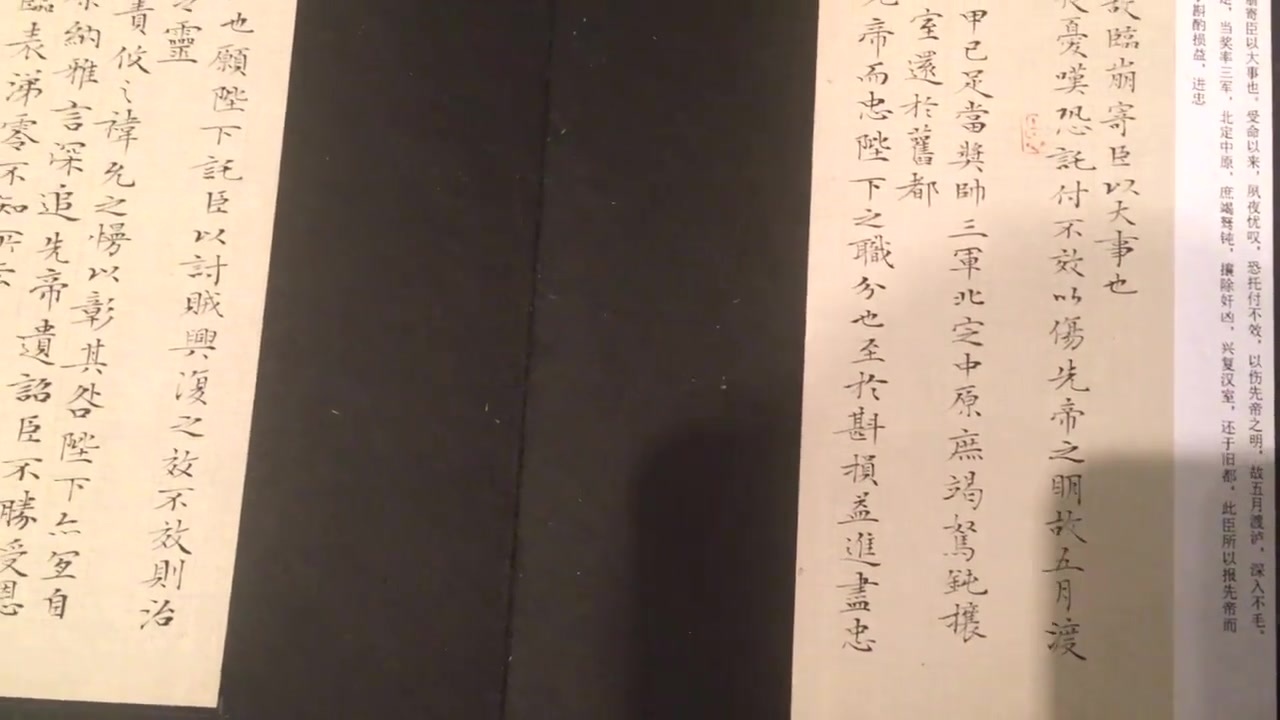 崩寄臣以大事也。受命以来，夙夜忧叹，恐托付不效，以伤先帝之明，故五月渡泸，深入不毛。
足，当奖率三军，北定中原，庶竭驽钝，攘除奸凶，兴复汉室，还于旧都。此臣所以报先帝而
斟酌损益，进忠
故臨崩寄臣以大事也
夜憂嘆恐託付不效以傷先帝之明故五月渡
甲已足當獎帥三軍北定中原庶竭駑鈍攘
室還於舊都
先帝而忠陛下之職分也至於斟損益進盡忠
也願陛下託臣以討賊興復之效不放則治
靈
責攸之禕允之慢以彰其咎陛下亦宜自
納雅言深追先帝遺詔臣不勝受恩
臨表涕零不知所云